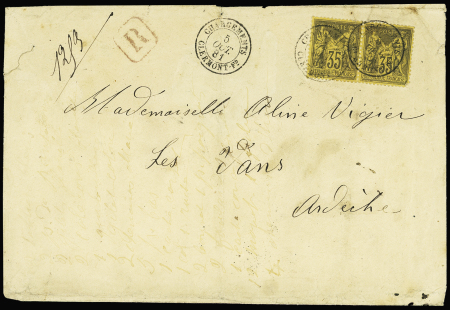 1213
R
CHARGEMENTS
5
OCT
81
CLERMONT-Fd
35
35
Mademoiselle Aline Vigier
Les Vans
Ardèche